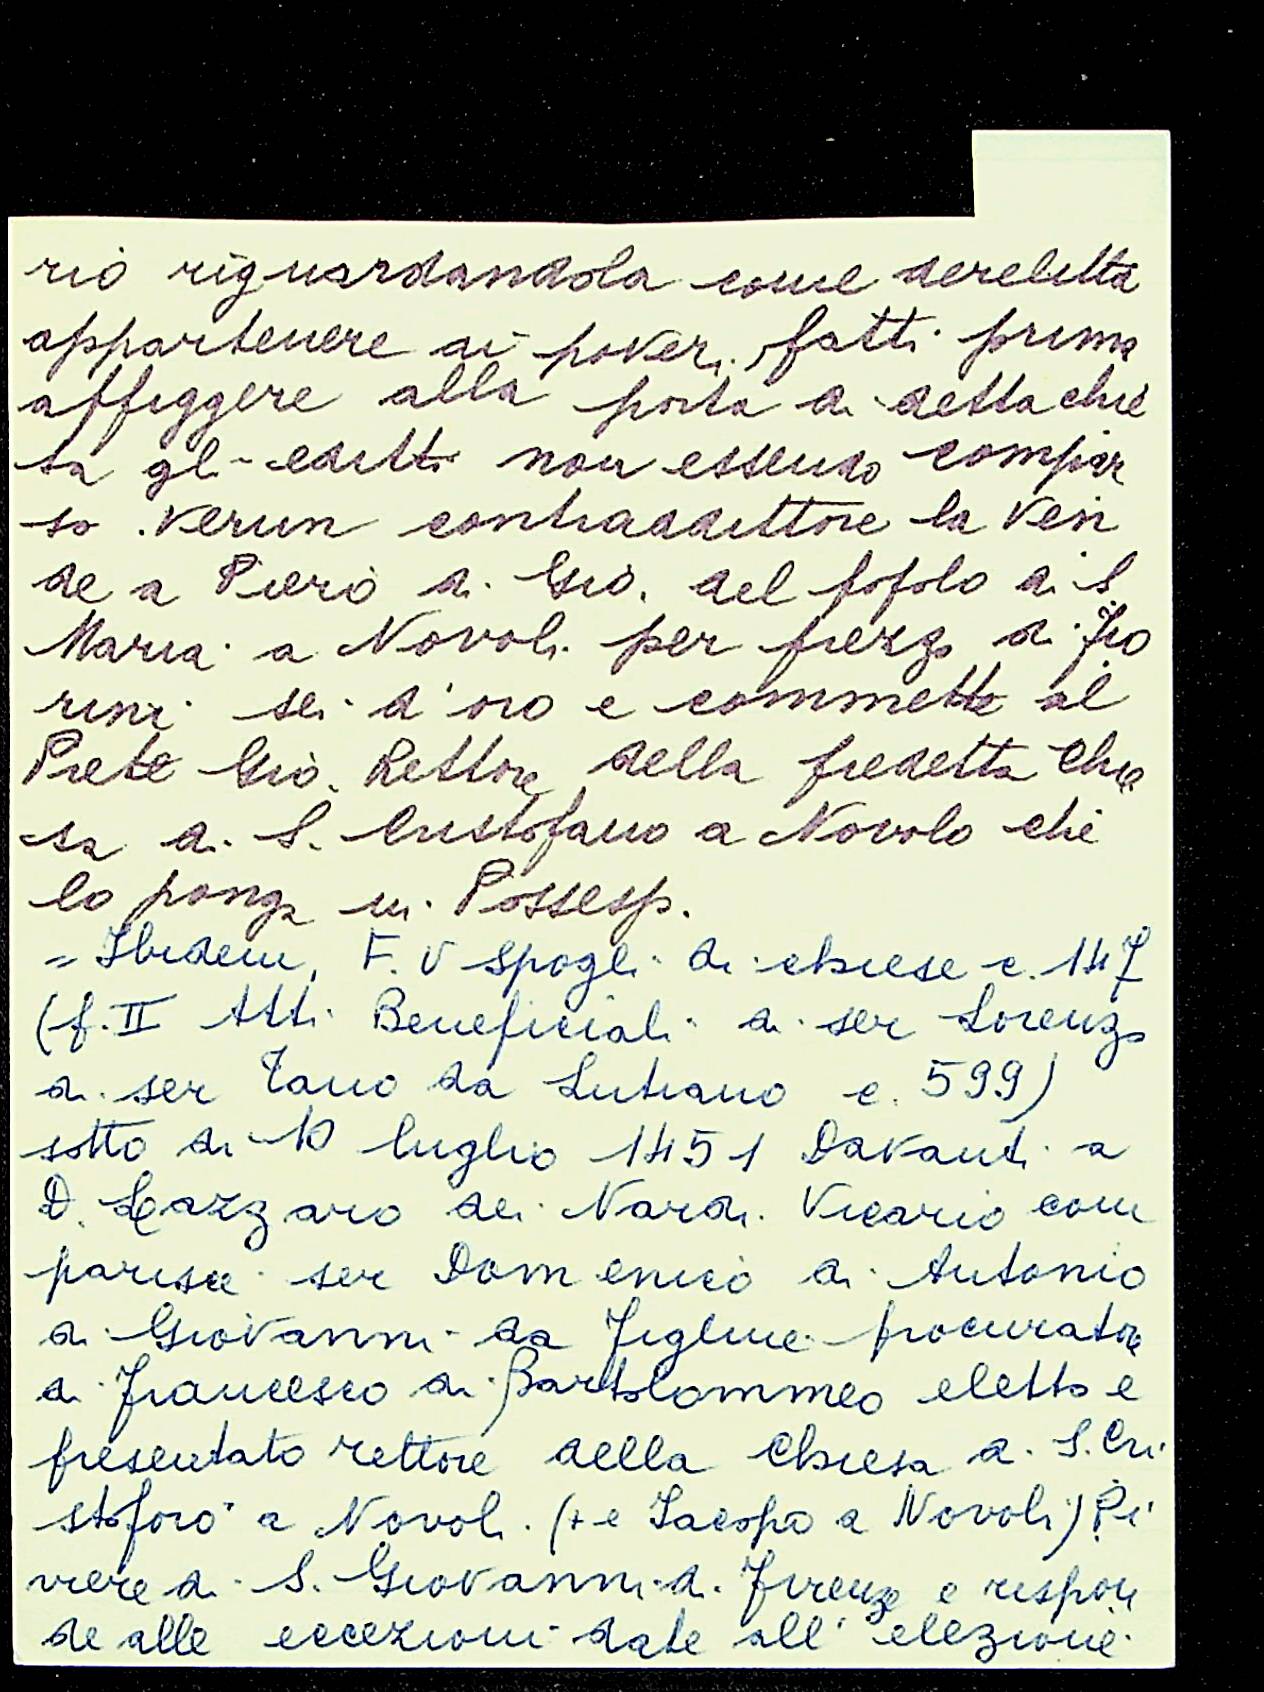 rio riguardandola come derelitta
appartenere ai poveri, fatti prima
affiggere alla porta di detta chie
sa gl'editti non essendo compar
so verun contraddittore la ven
de a Piero di Gio. del popolo di S.
Maria a Novoli per prezzo di fio
rini sei d'oro e commette al
Prete Gio. Rettore della predetta Chie
sa di S. Cristofano a Novolo che
lo ponga in Possesso.
= Ibidem, F. V Spogli di chiese c. 147
(f. II Atti Beneficiali di ser Lorenzo
di ser Tano da Lutiano c. 599)
sotto di 10 luglio 1451 Davanti a
D. Lazzaro dei Nardi Vicario com
parisce ser Domenico di Antonio
di Giovanni da Figline procuratore
di Francesco di Bartolommeo eletto e
presentato rettore della Chiesa di S. Cri
stoforo a Novoli (+ e Iacopo a Novoli) Pi
viere di S. Giovanni di Firenze e rispon
de alle eccezioni date all'elezione